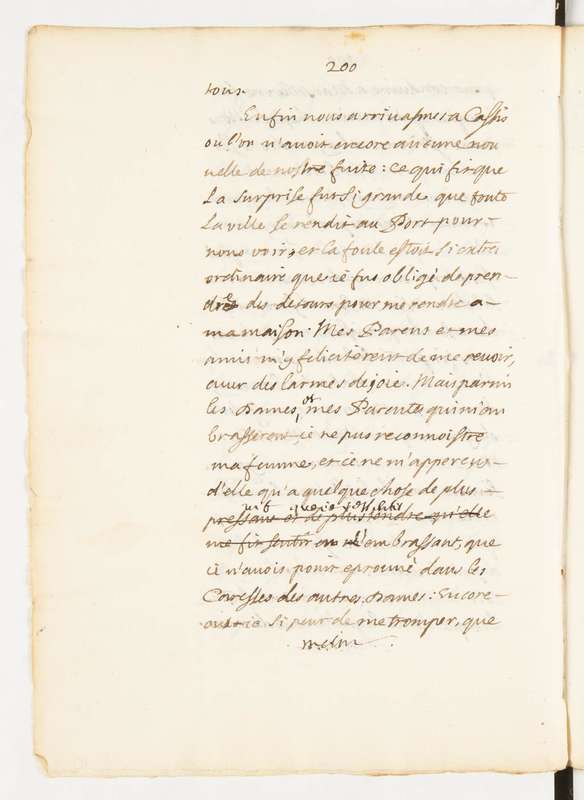 200
tous.
Enfin nous arrivasmes a Cassis
ou l'on n'avoit encore aucune nou
velle de nostre fuite: ce qui fit que
la surprise fut si grande que toute
la ville se rendit au Port pour
nous voir, et la foule estoit si extra
ordinaire que ie fus obligé de pren-
dre des detours pour me rendre a
ma maison. Mes Parens et mes
amis m'y feliciterent de me revoir,
avec des larmes de joie. Mais parmi
les Dames, et mes Parentes qui m'em
brasserent ie ne pus reconnoistre
ma femme, et ie ne m'apperçus
d'elle qu'a quelque chose de plus
vif que ie sentis
pressant et de plus tendre qu'elle
me fit sentir en m'embrassant, que
ie n'avois point eprouvé dans les
Caresses des autres Dames: Encore
avois ie si peur de me tromper, que